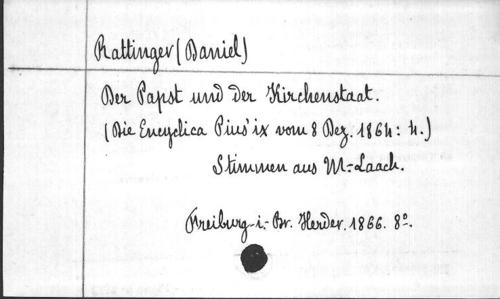 Rattinger (Daniel)
Der Papst und der Kirchenstaat.
(Die Encyclica Pius' ix vom 8 Dez. 1864: 4.)
Stimmen aus M=Laach.
Freiburg-i.-Br. Herder. 1866. 8º.